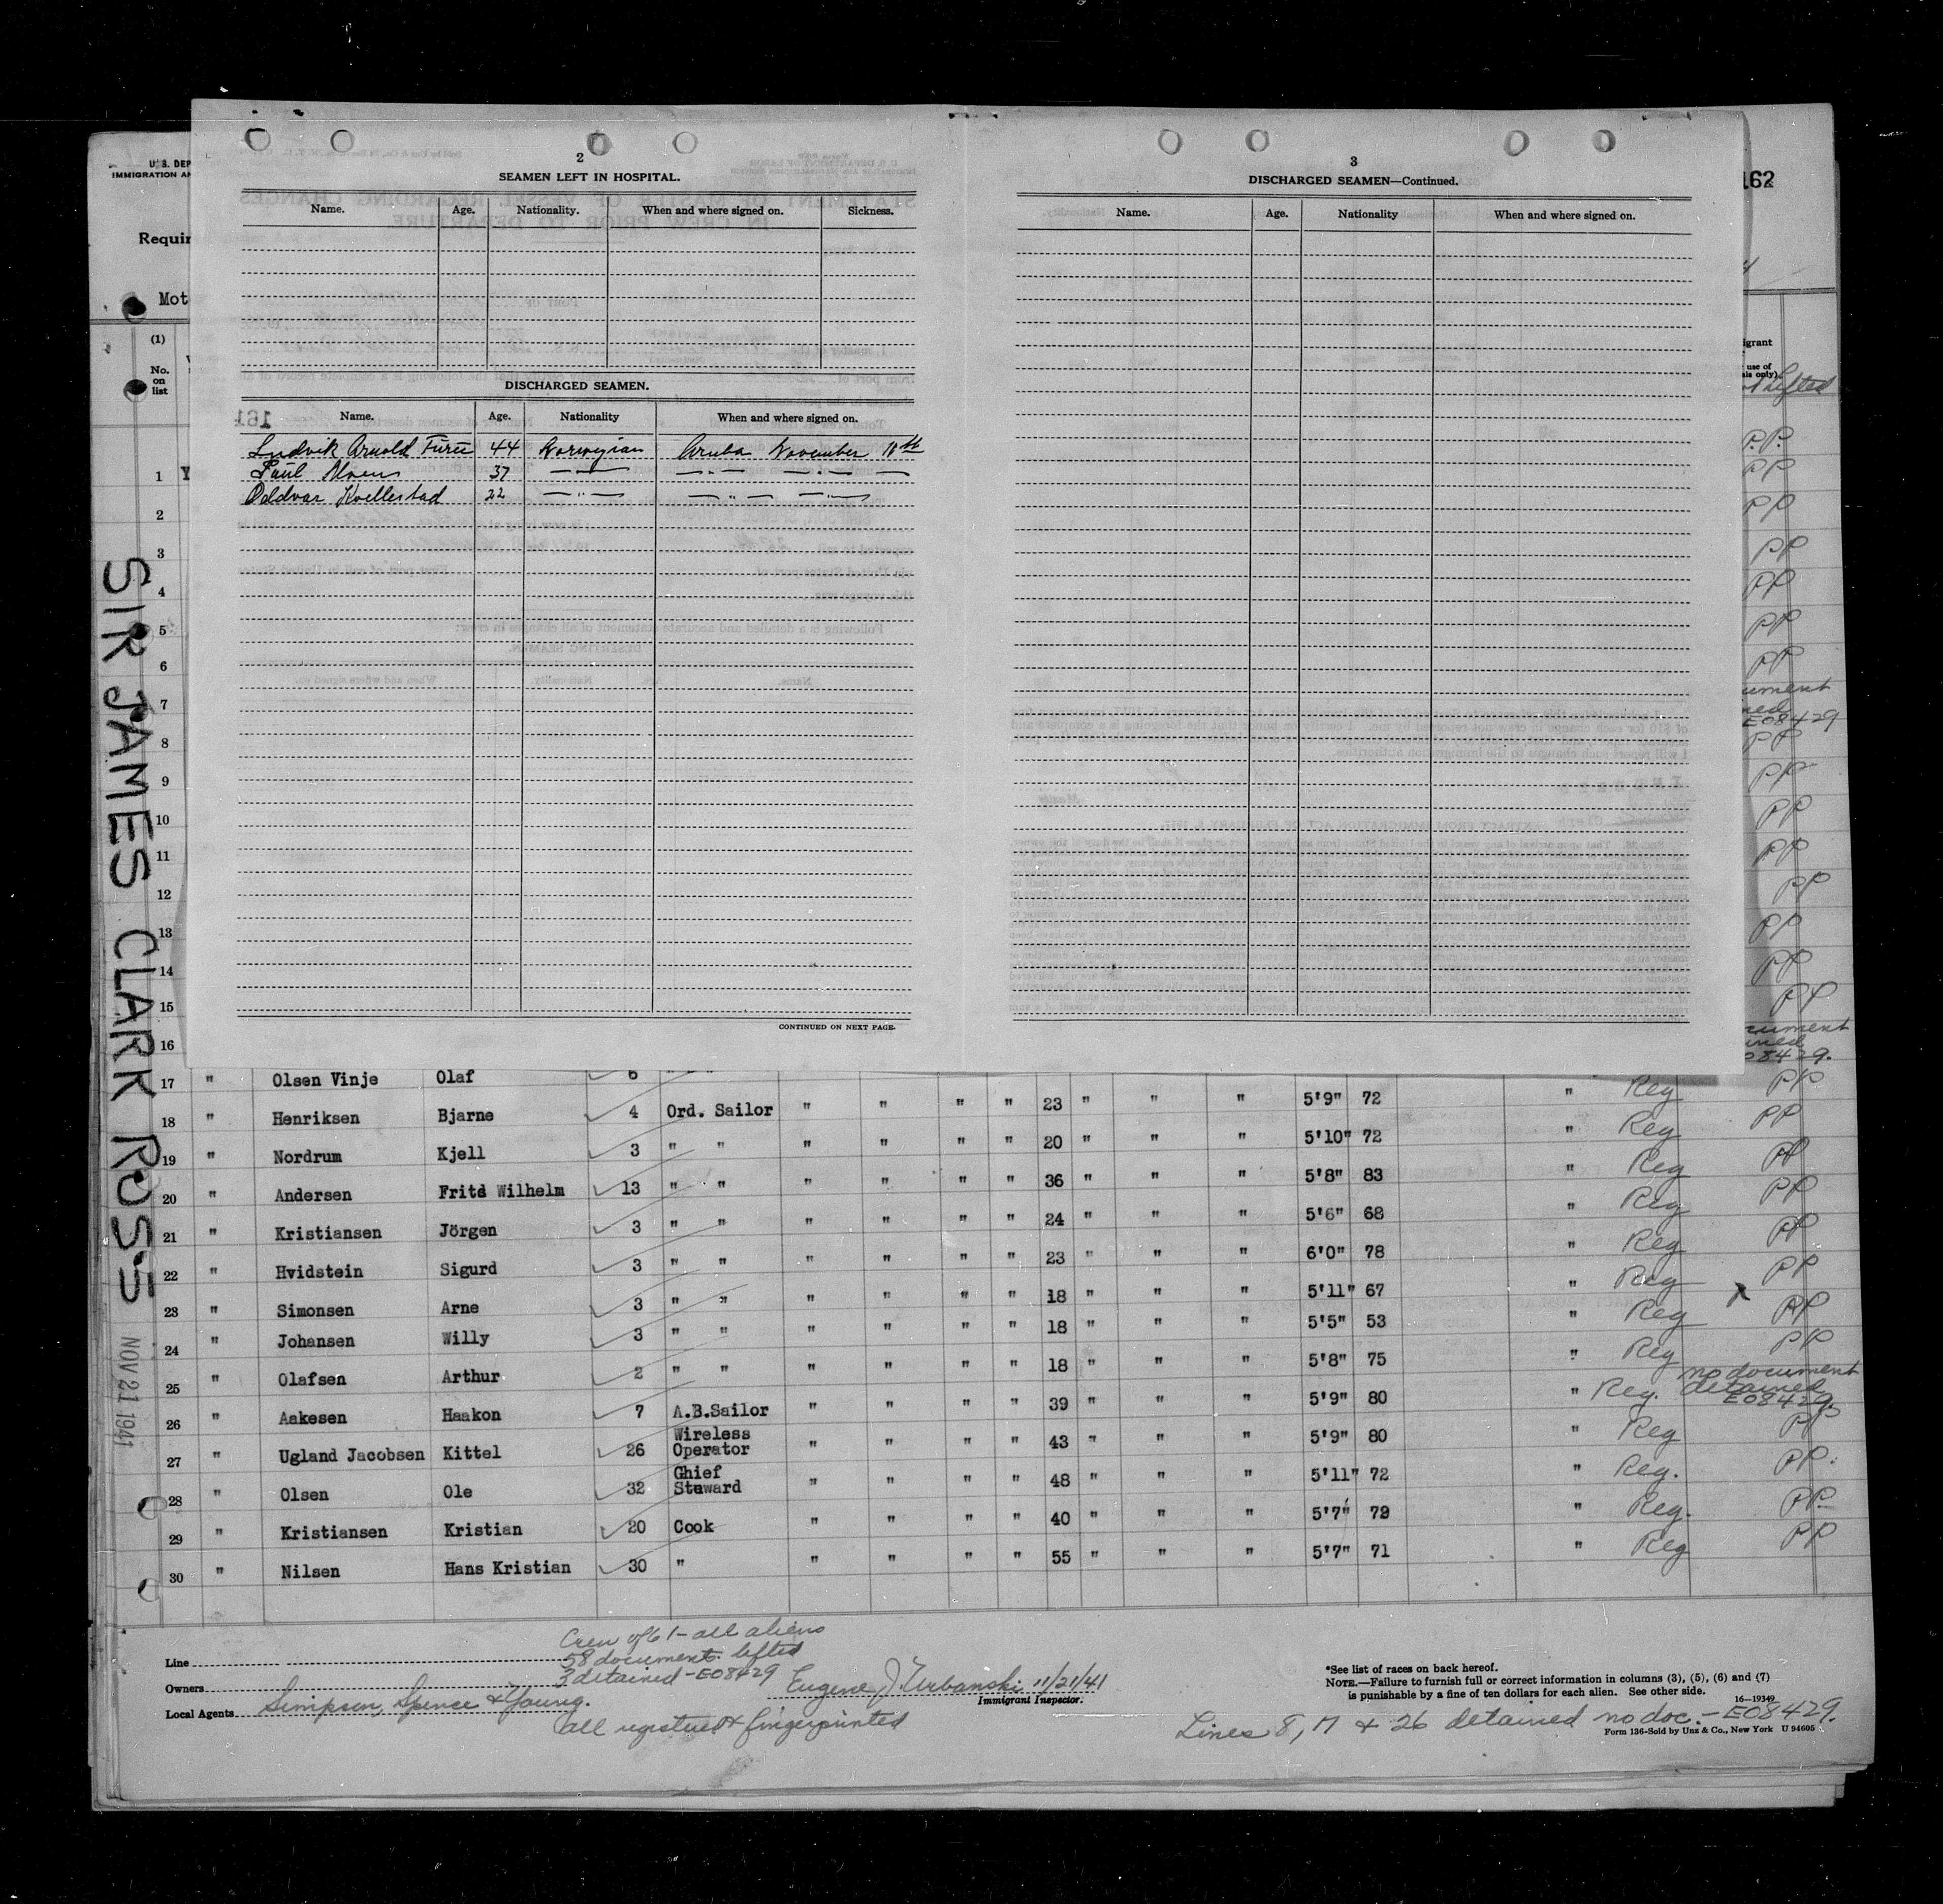 U. S. DEP
IMMIGRATION AN
Requir
Mot
(1)
No.
on
list
2
SEAMEN LEFT IN HOSPITAL.
Name. Age. Nationality. When and where signed on. Sickness.
DISCHARGED SEAMEN.
Name. Age. Nationality When and where signed on.
Ludvik Arnold Furu 44 Norwegian Aruba November 18th
Paul Moen 37 " " "
Oddvar Kvellestad 22 " " "
CONTINUED ON NEXT PAGE.
3
DISCHARGED SEAMEN—Continued.
Name. Age. Nationality When and where signed on.
162
igrant
use of
als only)
lifted
P.P.
PP
PP
PP
PP
PP
PP
ument
ned
E08429
PP
PP
PP
PP
PP
PP
PP
PP
cument
ined
08429.
1
2
3
4
5
6
7
8
9
10
11
12
13
14
15
16
SIR JAMES CLARK ROSS
NOV 21 1941
17 " Olsen Vinje Olaf 6 " " Reg PP
18 " Henriksen Bjarne 4 Ord. Sailor " " " " 23 " " " 5'9" 72 " Reg PP
19 " Nordrum Kjell 3 " " " " " " 20 " " " 5'10" 72 " Reg PP
20 " Andersen Frits Wilhelm 13 " " " " " " 36 " " " 5'8" 83 " Reg PP
21 " Kristiansen Jörgen 3 " " " " " " 24 " " " 5'6" 68 " Reg PP
22 " Hvidstein Sigurd 3 " " " " " " 23 " " " 6'0" 78 " Reg PP
23 " Simonsen Arne 3 " " " " " " 18 " " " 5'11" 67 " Reg x PP
24 " Johansen Willy 3 " " " " " " 18 " " " 5'5" 53 " Reg PP
25 " Olafsen Arthur 2 " " " " " " 18 " " " 5'8" 75 " Reg no document
26 " Aakesen Haakon 7 A.B.Sailor " " " " 39 " " " 5'9" 80 " Reg. detained E08429.
27 " Ugland Jacobsen Kittel 26 Wireless Operator " " " " 43 " " " 5'9" 80 " Reg PP
28 " Olsen Ole 32 Ghief Steward " " " " 48 " " " 5'11" 72 " Reg. PP.
29 " Kristiansen Kristian 20 Cook " " " " 40 " " " 5'7" 79 " Reg. PP.
30 " Nilsen Hans Kristian 30 " " " " " 55 " " " 5'7" 71 " Reg PP
Crew of 61 - all aliens
58 documents lifted
3 detained - E08429
Line
Owners
Local Agents Simpson, Spence & Young.
Eugene J. Urbanski 11/21/41
Immigrant Inspector.
all registered & fingerprinted
*See list of races on back hereof.
NOTE.—Failure to furnish full or correct information in columns (3), (5), (6) and (7)
is punishable by a fine of ten dollars for each alien. See other side.
16—19349
Lines 8, 17 & 26 detained no doc. - E08429.
Form 136-Sold by Unz & Co., New York U 94605